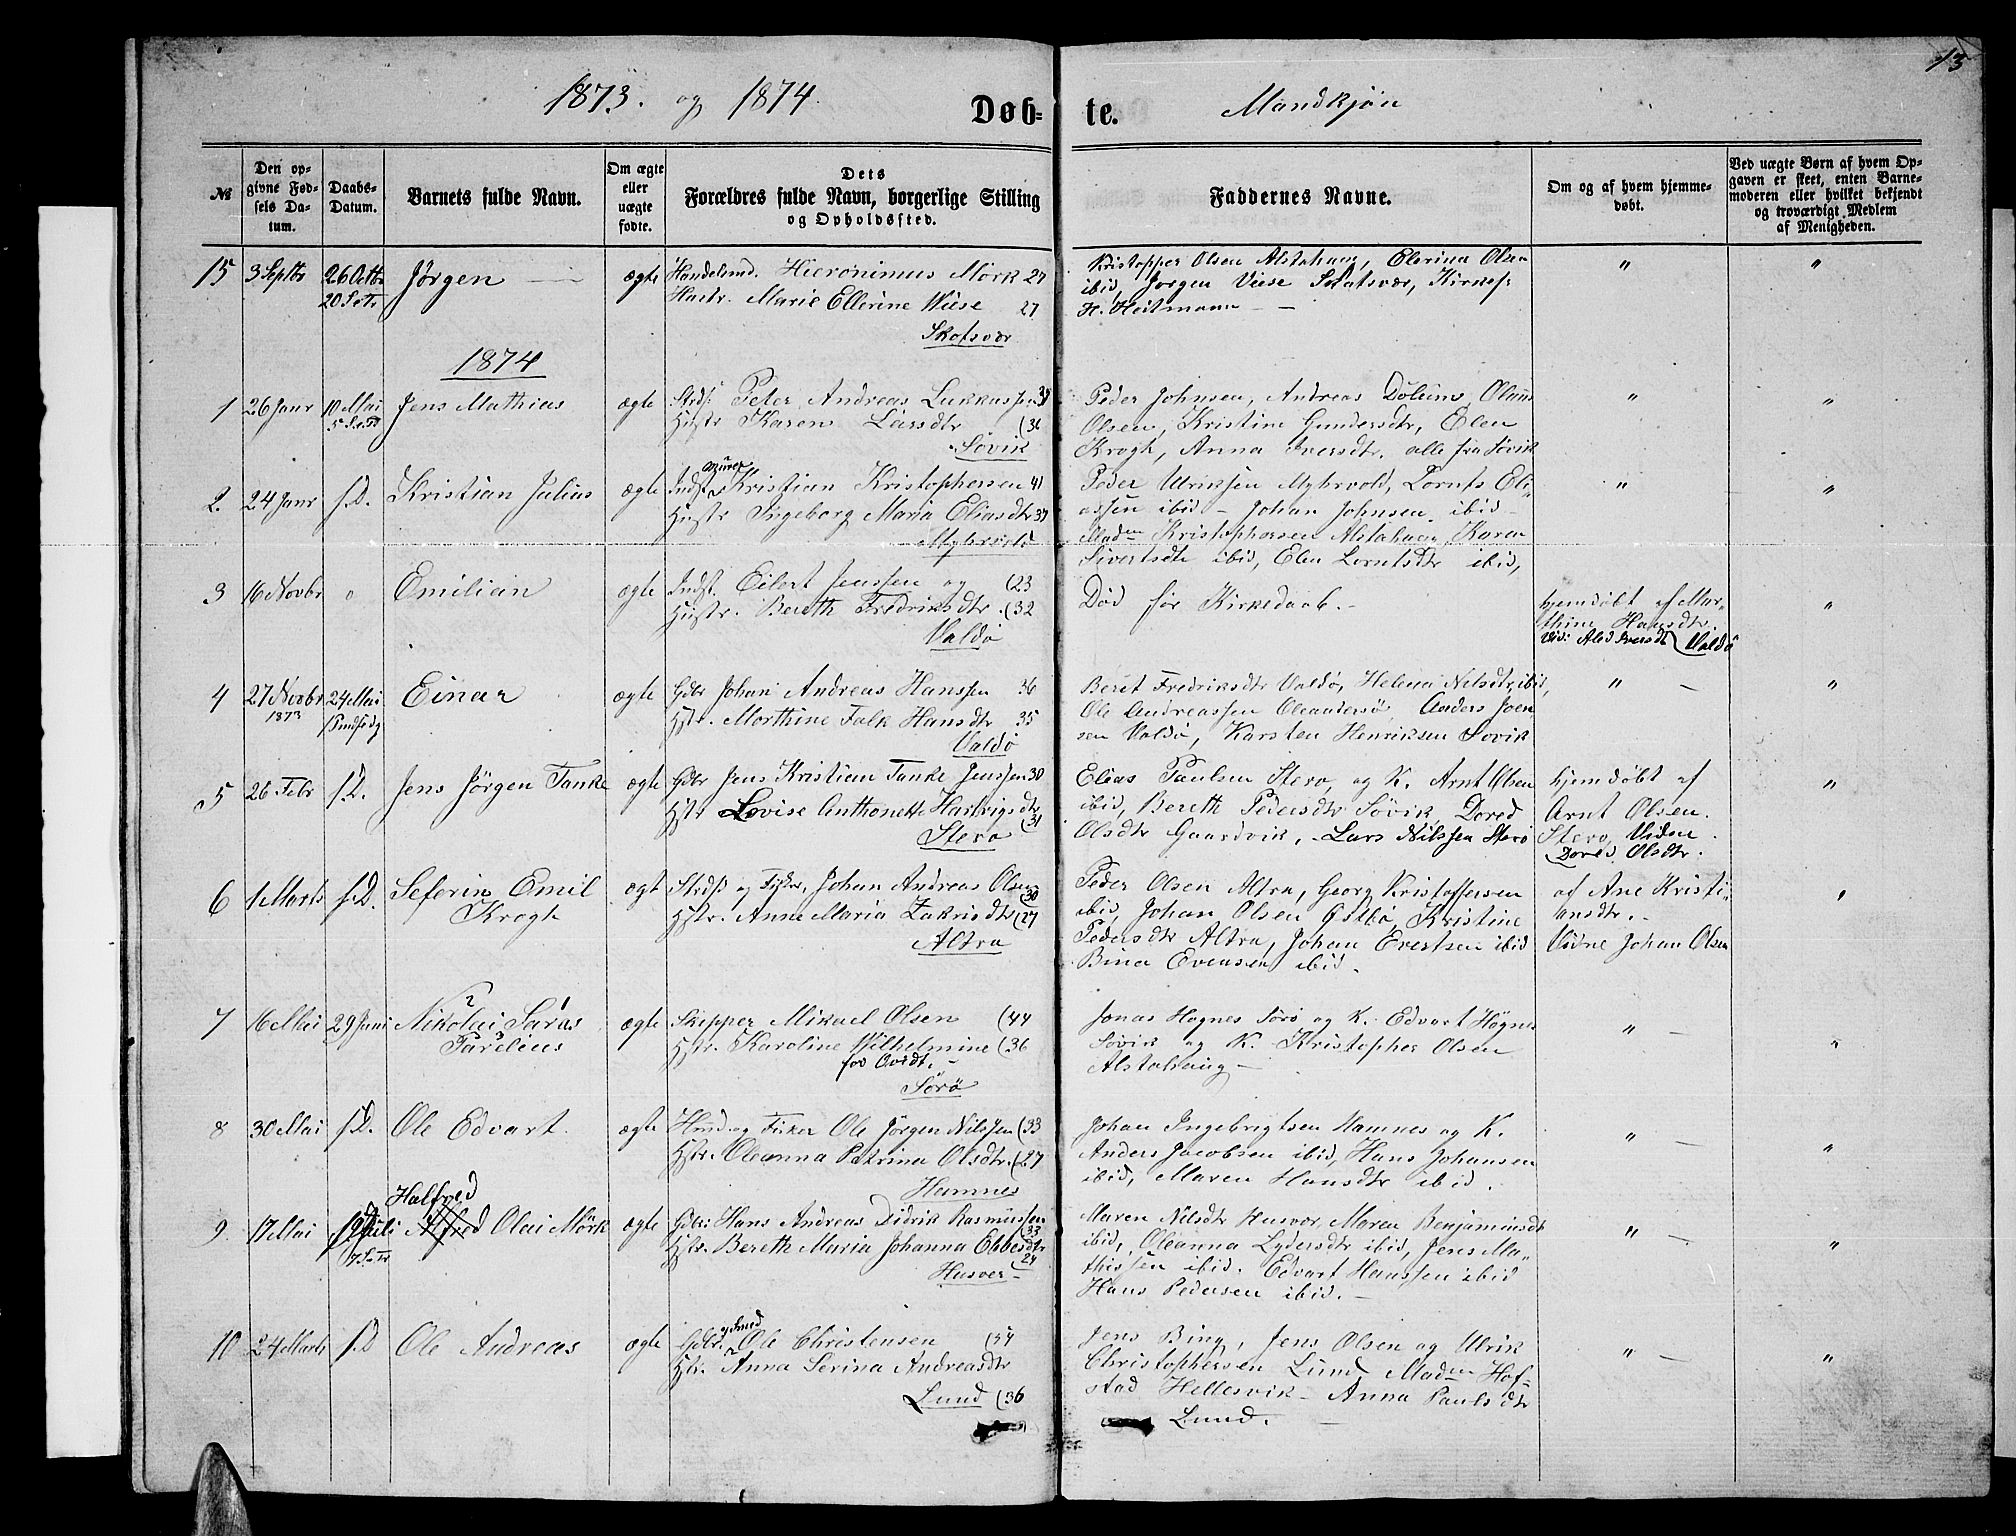 13
1873. og 1874.
Døb- te.
Mandkjøn
№
Den op-
givne Fød-
sels Da-
tum.
Daabs-
Datum.
Barnets fulde Navn.
Om ægte
eller
uægte
fødte.
Dets
Forældres fulde Navn, borgerlige Stilling
og Opholdssted.
Faddernes Navne.
Om og af hvem hjemme-
døbt.
Ved uægte Børn af hvem Op-
gaven er skeet, enten Barne-
moderen eller hvilket bekjendt
og troværdigt Medlem
af Menigheden.
15 3 Septbr 26 Octbr Jørgen — ægte Handelsmd. Hieronimus Mørk 27
20 S.e.Tr Hustr. Marie Ellerine Wiese 27
Skotsvær
Kristopper Olsen Alstahaug, Elerina Olsen
ibid, Jørgen Viese Skotsvær, Kirkes.
H. Heitmann — — " "
1874
1 26 Janr 10 Mai Jens Mathias ægte Strds. Peter Andreas Lukkassen 38
Hustr Karen Larsdtr (36
Søvik
Peder Johnsen, Andreas Olaus
Olsen, Kristine Gundersdtr, Elen
Krogh, Anna Iversdtr. alle fra Søvik " "
2. 24 Janr s.D. Kristian Julius ægte Indst Murer Kristian Kristophersen 41
Hustr Ingeborg Maria Eliasdtr 37
Myhrvold
Peder Ulriksen Myhrvold, Lornts Eli-
assen ibid — Johan Johnsen ibid —
Madm Kristophersen Alstahaug, Karen
Sivertsdtr ibid, Elen Lorntsdtr ibid, " "
3 16 Novbr " Emilian ægte Indst. Eilert Jenssen og (23
Hustr. Bereth Fredriksdtr. (32
Valdø
Død før Kirkedaab. —
hjemdøbt af Mar-
thine Hansdtr.
Vid: Iversdt Valdø "
4 27 Novbr 24 Mai Einar ægte Gdbr Johan Andreas Hanssen 36
1873 Hstr. Morthine Falk Hansdtr 35
Valdø
Beret Fredriksdtr Valdø, Helena Nilsdtr, ibid,
Ole Andreassen Oleandersø, Anders Joen
sen Valdø, Karsten Henriksen Søvik " — "
5 26 Febr s.D. Jens Jörgen Tanke ægte Gdbr Jens Kristian Tanke Jenssen 30
Hstr Lovise Anthonette Hartvigsdtr
(31
Stero
Elias Paulsen Stero, og K. Arnt Olsen
ibid, Bereth Pedersdtr Søvik, Dored
Olsdtr Gaardvik, Lars Nilssen Sterø
hjemdøbt af
Arnt Olsen.
Stero, Viden
Dored Olsdtr. "
6 1 Marts s.D. Seferin Emil ægt Strds. og Fisker, Johan Andreas Olsen
Krogh (30
Hstr. Anne Maria Zakrisdtr (27
Altra
Peder Olsen Altra, Georg Kristoffersen
ibid, Johan Olsen Østbø, Kristine
Pedersdtr Altra, Johan Evertsen ibid
Bina Evensen ibid.
af Ane Kristi-
ansdtr. —
Vidne Johan Olsen "
7 16 Mai 29 Juni Nikolai Saras ægte Skipper Mikael Olsen (44
2 1
Parelius Hstr. Karoline Wilhelmine (36
3 fød Qvidt. —
Sørø
Jonas Hognes Sørø og K. Edvart Høgnes
Søvik og K. Kristopher Olsen
Alstahaug — " — "
8 30 Mai s.D. Ole Edvart. ægte Hmd og Fisker Ole Jörgen Nilssen (33
Hstr. Oleanna Petrina Olsdtr. (27
Hamnes
Johan Ingebrigtsen Hamnes og K.
Anders Jacobsen ibid, Hans Johansen
ibid, Maren Hansdtr ibid. " — "
Halfred
9. 17 Mai 19 Juli Alfred Olai Mörk ægte Gdbr: Hans Andreas Didrik Rasmussen
7 S.e.Tr (33
Hstr. Bereth Maria Johanna Ebbesdtr
(24
Husver —
Maren Nilsdtr Husvær, Maren Benjaminsdtr
ibid, Oleanna Lydersdtr ibid, Jens Ma-
thissen ibid. Edvart Hanssen ibid
Hans Pedersen ibid. — " — "
10 24 Marts s.D Ole Andreas ægte Gdbr. og Smed Ole Christensen
Hstr. Anna Serina Andreasdtr
Lund (36
Jens Bing, Jens Olsen og Ulrik
Christophersen Lund, Madm Hof-
stad Hellesvik — Anna Paulsdtr
Lund. — " — "